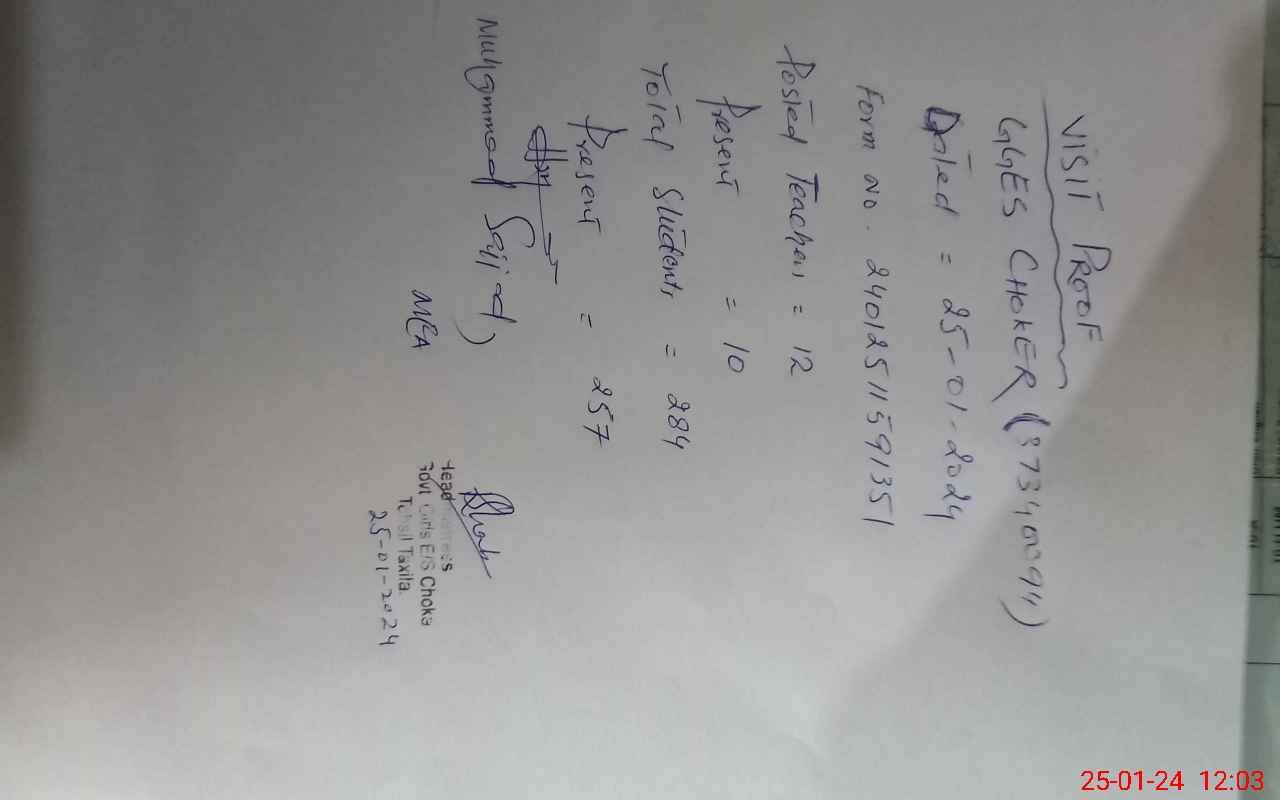 VISIT PROOF
GGES CHOKER (37340094)
Dated = 25-01-2024
Form No. 24012511591351
Posted Teachers = 12
Present = 10
Total Students = 284
Present = 257
Muhammad Sajjad)
MEA
Head
Govt Girls E/S Choka
Tehsil Taxila.
25-01-2024
25-01-24 12:03